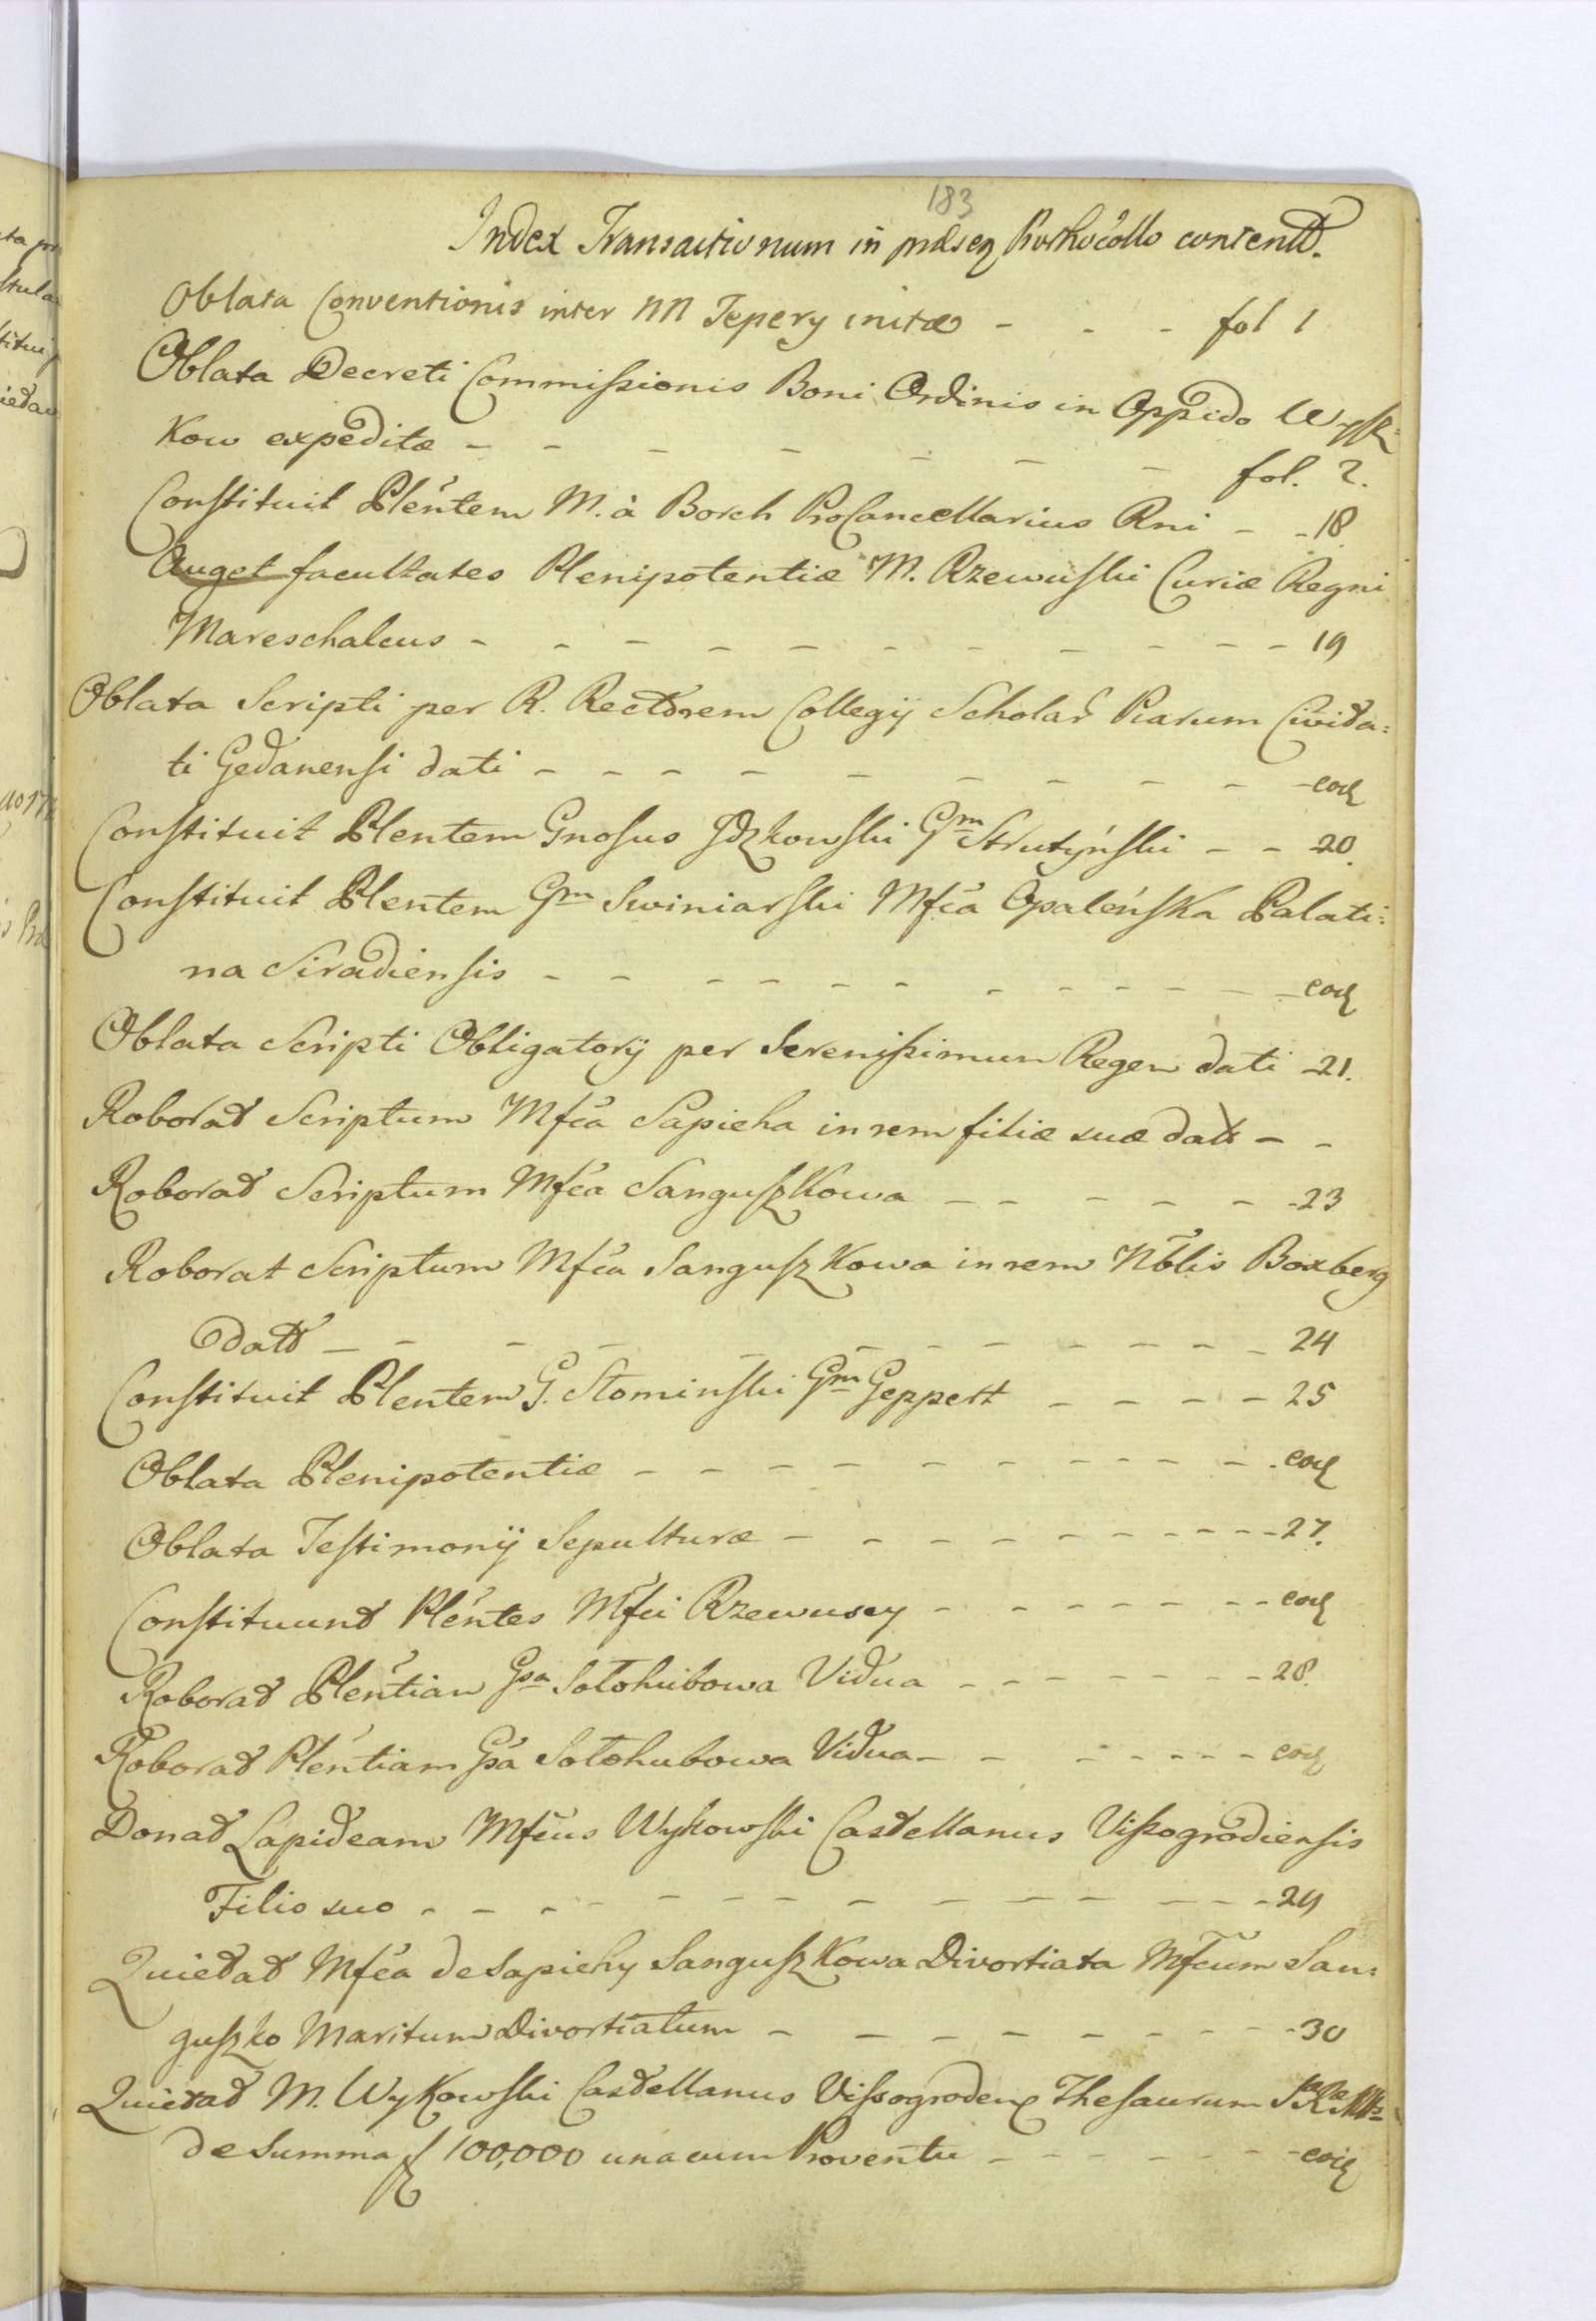 183
Index Transactionum in præsen Prothocollo content.
Oblata Conventionis inter NN Tepery initæ - - - fol 1
Oblata Decreti Commissionis Boni Ordinis in Oppido Wysz=
kow expeditæ - - - - - - - fol. 2.
Constituit Plentem M. à Borch ProCancellarius Rni - - 18
Auget facultates Plenipotentiæ M. Rzewuski Curiæ Regni
Mareschalcus - - - - - - - - - - - 19
Oblata Scripti per R. Rectorem Collegij Scholar Piarum Civita=
ti Gedanensi dati - - - - - - - - - - eod
Constituit Plentem Gnosus Idzkowski Gm Strutyński - - 20
Constituit Plentem Gm Swiniarski Mfca Opaleńska Palati=
na Siradiensis - - - - - - - - - - - eod
Oblata Scripti Obligatorij per Serenissimum Regem dati - 21.
Roborat Scriptum Mfca Sapieha in rem filiæ suæ dat - -
Roborat Scriptum Mfca Sanguszkowa - - - - - - 23
Roborat Scriptum Mfca Sanguszkowa in rem Nblis Boxberg
dat - - - - - - - - - - - 24
Constituit Plentem G. Słominski Gm Geppert - - - - 25
Oblata Plenipotentiæ - - - - - - - - - - - eod
Oblata Testimonij Sepulturæ - - - - - - - - - - 27.
Constituunt Plentes Mfci Rzewuscy - - - - - - - eod
Roborat Plentiam Gsa Sołohubowa Vidua - - - - - - - 28.
Roborat Plentiam Gsa Sołohubowa Vidua - - - - - - - eod
Donat Lapideam Mfcus Wykowski Castellanus Vissogrodiensis
Filio suo - - - - - - - - - - - - - 29
Quietat Mfca de Sapiehy Sanguszkowa Divortiata Mfcum San=
guszko Maritum Divortiatum - - - - - - - - - 30
Quietat M. Wykowski Castellanus Vissogroden Thesaurum
de Summa f 100,000 unacum Proventu - - - - - - - eod